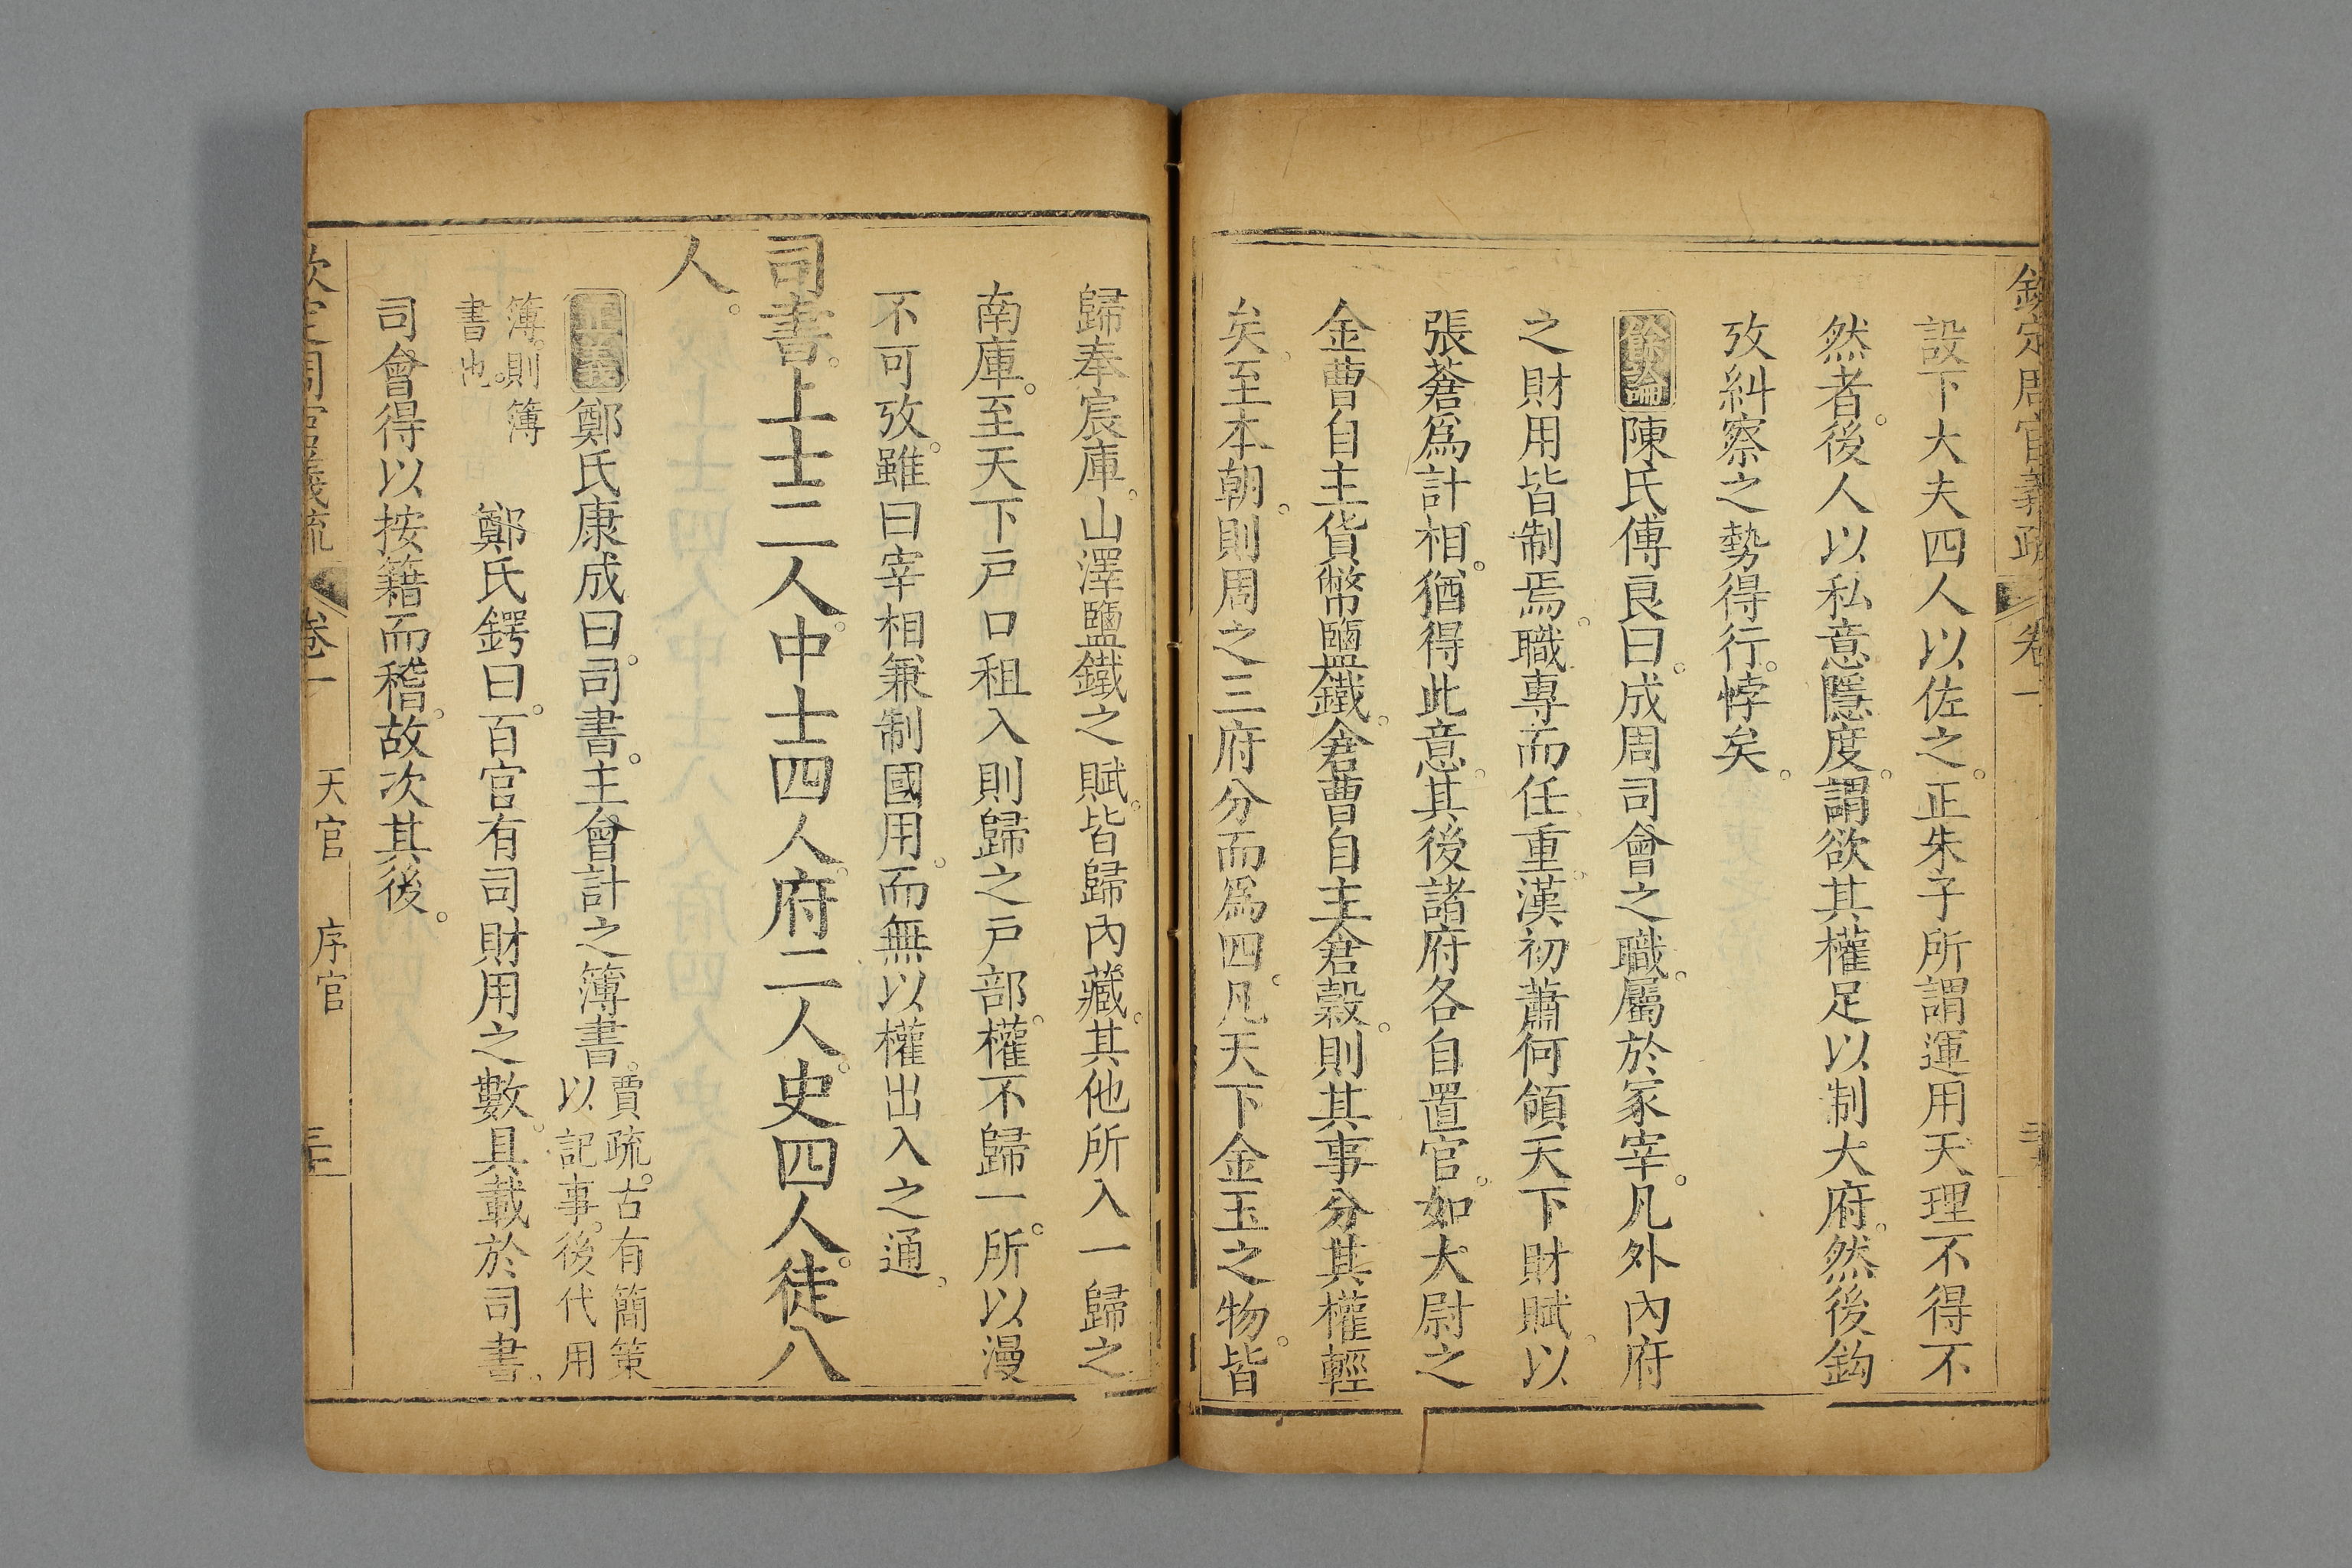 欽定周官義疏 卷一
設下大夫四人以佐之。正朱子所謂運用天理不得不
然者。後人以私意隱度。謂欲其權足以制大府。然後鈎
攷糾察之勢得行。悖矣。
餘論陳氏傅良曰。成周司會之職。屬於冢宰。凡外內府
之財用皆制焉。職專而任重。漢初蕭何領天下財賦。以
張蒼爲計相。猶得此意。其後諸府各自置官。如大尉之
金曹自主貨幣鹽鐵。倉曹自主倉穀。則其事分其權輕
矣。至本朝。則周之三府分而爲四。凡天下金玉之物。皆
歸奉宸庫。山澤鹽鐵之賦。皆歸內藏。其他所入一歸之
南庫。至天下戸口租入則歸之戸部。權不歸一。所以漫
不可攷。雖曰宰相兼制國用。而無以權出入之通。
司書。上士二人。中士四人。府二人。史四人。徒八
人。
正義鄭氏康成曰。司書。主會計之簿書。賈疏。古有簡策
以記事。後代用
簿。則簿
書也。鄭氏鍔曰。百官有司財用之數。具載於司書。
司會得以按籍而稽。故次其後。
欽定周官義疏 卷一 天官 序官